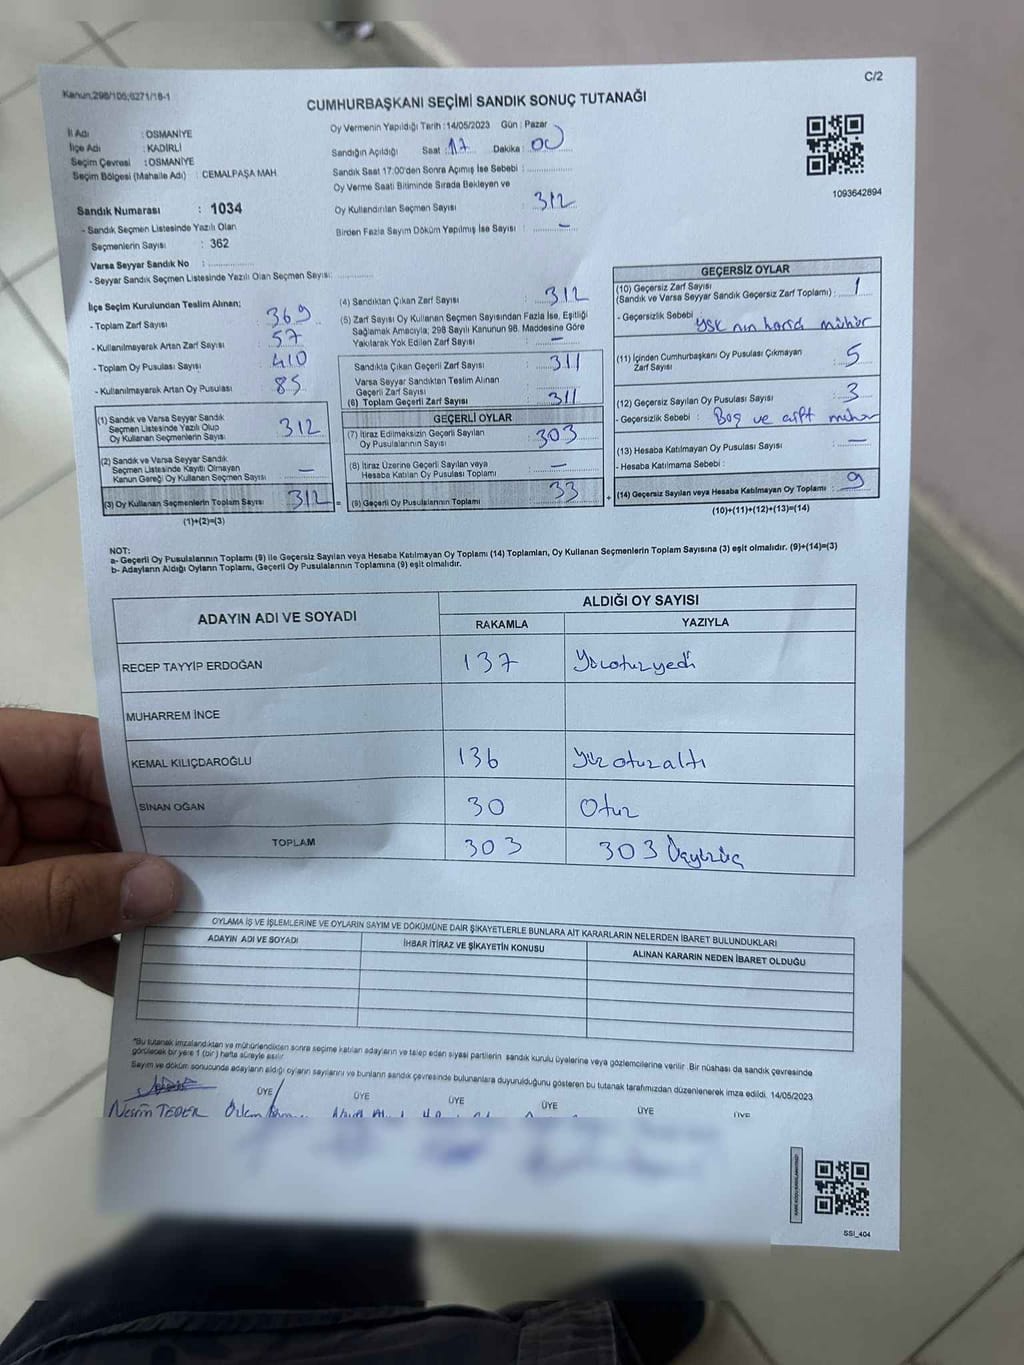 Kanun:298/106;6271/18-1
C/2
CUMHURBAŞKANI SEÇİMİ SANDIK SONUÇ TUTANAĞI
İl Adı : OSMANİYE
İlçe Adı : KADİRLİ
Seçim Çevresi : OSMANİYE
Seçim Bölgesi (Mahalle Adı) : CEMALPAŞA MAH.
Oy Vermenin Yapıldığı Tarih :14/05/2023 Gün : Pazar
Sandığın Açıldığı Saat : 17 Dakika : 00
Sandık Saat 17:00'den Sonra Açımış İse Sebebi :
Oy Verme Saati Bitiminde Sırada Bekleyen ve
Oy Kullandırılan Seçmen Sayısı : 312
Birden Fazla Sayım Döküm Yapılmış İse Sayısı : —
1093642894
Sandık Numarası : 1034
- Sandık Seçmen Listesinde Yazılı Olan
Seçmenlerin Sayısı : 362
Varsa Seyyar Sandık No :
- Seyyar Sandık Seçmen Listesinde Yazılı Olan Seçmen Sayısı:
İlçe Seçim Kurulundan Teslim Alınan;
- Toplam Zarf Sayısı : 369
- Kullanılmayarak Artan Zarf Sayısı : 57
- Toplam Oy Pusulası Sayısı : 410
- Kullanılmayarak Artan Oy Pusulası : 85
(1) Sandık ve Varsa Seyyar Sandık
Seçmen Listesinde Yazılı Olup
Oy Kullanan Seçmenlerin Sayısı : 312
(2) Sandık ve Varsa Seyyar Sandık
Seçmen Listesinde Kayıtlı Olmayan
Kanun Gereği Oy Kullanan Seçmen Sayısı : —
(3) Oy Kullanan Seçmenlerin Toplam Sayısı : 312 =
(1)+(2)=(3)
(4) Sandıktan Çıkan Zarf Sayısı : 312
(5) Zarf Sayısı Oy Kullanan Seçmen Sayısından Fazla İse, Eşitliği
Sağlamak Amacıyla; 298 Sayılı Kanunun 98. Maddesine Göre
Yakılarak Yok Edilen Zarf Sayısı : —
Sandıkta Çıkan Geçerli Zarf Sayısı : 311
Varsa Seyyar Sandıktan Teslim Alınan
Geçerli Zarf Sayısı :
(6) Toplam Geçerli Zarf Sayısı : 311
GEÇERLİ OYLAR
(7) İtiraz Edilmeksizin Geçerli Sayılan
Oy Pusulalarının Sayısı : 303
(8) İtiraz Üzerine Geçerli Sayılan veya
Hesaba Katılan Oy Pusulası Toplamı : —
(9) Geçerli Oy Pusulalarının Toplamı : 33 +
GEÇERSİZ OYLAR
(10) Geçersiz Zarf Sayısı
(Sandık ve Varsa Seyyar Sandık Geçersiz Zarf Toplamı) : 1
- Geçersizlik Sebebi : YSK nın harici mühür
(11) İçinden Cumhurbaşkanı Oy Pusulası Çıkmayan
Zarf Sayısı : 5
(12) Geçersiz Sayılan Oy Pusulası Sayısı : 3
- Geçersizlik Sebebi : Boş ve çift mühür
(13) Hesaba Katılmayan Oy Pusulası Sayısı : —
- Hesaba Katılmama Sebebi :
(14) Geçersiz Sayılan veya Hesaba Katılmayan Oy Toplamı : 9
(10)+(11)+(12)+(13)=(14)
NOT:
a- Geçerli Oy Pusulalarının Toplamı (9) ile Geçersiz Sayılan veya Hesaba Katılmayan Oy Toplamı (14) Toplamları, Oy Kullanan Seçmenlerin Toplam Sayısına (3) eşit olmalıdır. (9)+(14)=(3)
b- Adayların Aldığı Oyların Toplamı, Geçerli Oy Pusulalarının Toplamına (9) eşit olmalıdır.
ADAYIN ADI VE SOYADI ALDIĞI OY SAYISI
RAKAMLA YAZIYLA
RECEP TAYYİP ERDOĞAN 137 Yüzotuzyedi
MUHARREM İNCE
KEMAL KILIÇDAROĞLU 136 Yüz otuzaltı
SİNAN OĞAN 30 Otuz
TOPLAM 303 303 Üçyüzüç
OYLAMA İŞ VE İŞLEMLERİNE VE OYLARIN SAYIM VE DÖKÜMÜNE DAİR ŞİKAYETLERLE BUNLARA AİT KARARLARIN NELERDEN İBARET BULUNDUKLARI
ADAYIN ADI VE SOYADI İHBAR İTİRAZ VE ŞİKAYETİN KONUSU ALINAN KARARIN NEDEN İBARET OLDUĞU
"Bu tutanak imzalandıktan ve mühürlendikten sonra seçime katılan adayların ve talep eden siyasi partilerin sandık kurulu üyelerine veya gözlemcilerine verilir. Bir nüshası da sandık çevresinde
görülecek bir yere 1 (bir) hafta süreyle asılır.
Sayım ve döküm sonucunda adayların aldığı oyların sayılarını ve bunların sandık çevresinde bulunanlara duyurulduğunu gösteren bu tutanak tarafımızdan düzenlenerek imza edildi. 14/05/2023
ÜYE ÜYE ÜYE ÜYE ÜYE
Nesrin TEDER Özlem
SSI_404